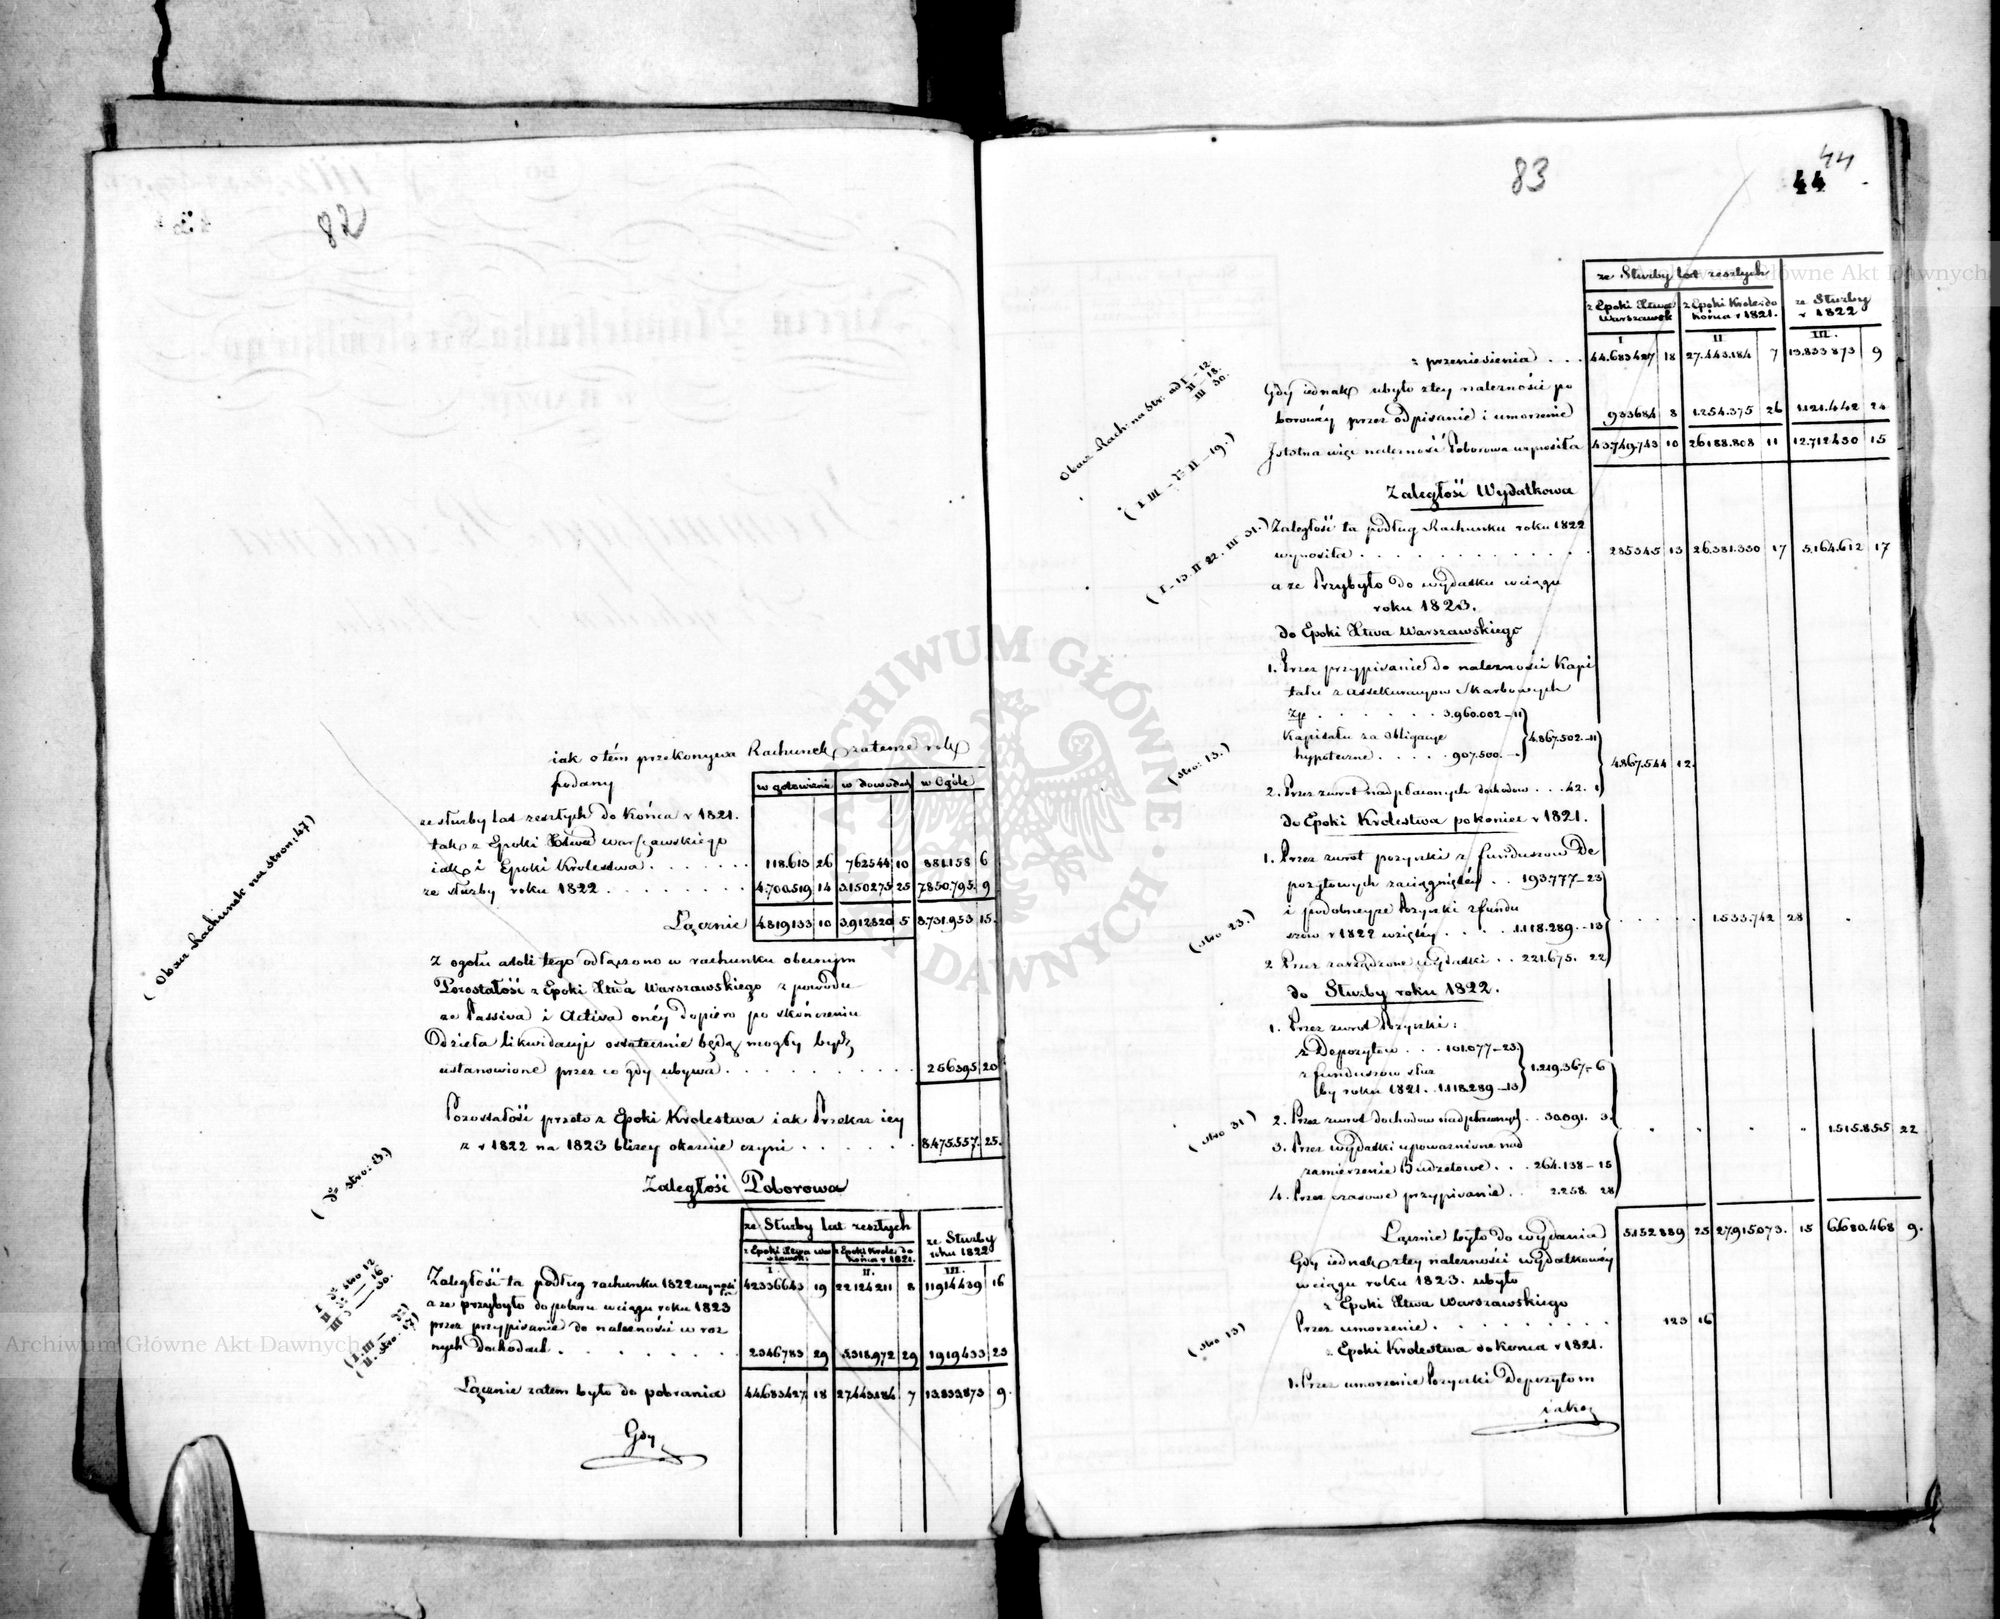 82
iak o tém przekonywa Rachunek zatenże rok
podany
w gotowiźnie w dowodach w Ogóle
ze służby lat zeszłych do końca r 1821.
tak z Epoki Xtwa Warszawskiego
iak i Epoki Krolestwa . . . . . . 118.613 26 762544 10 881.158 6
ze służby roku 1822 . . . . . . . . 4.700.519 14 3.150275 25 7.850.795. 9
Łącznie 4.819.133 10 3.912820 5 8.731.953 15.
(Obacz Rachunek na stron: 47)
Z ogołu atoli tego odłączono w rachunku obecnym
Pozostałość z Epoki Xtwa Warszawskiego z powodu
ze Passiva i Activa onéy dopiero po skończeniu
Dzieła likwidacyi ostatecznie będą mogły bydź
ustanowione przez co gdy ubywa . . . . . . . . . 256395 20
Pozostałość przeto z Epoki Krolestwa iak Przekaz iey
z r 1822 na 1823 bliżey okaże czyni . . . . . . 8.475.557. 25.
(do stro: 8.)
Zaległość Poborowa
ze Służby lat zeszłych ze Służby roku 1822
z Epoki Xtwa Warszawsk: z Epoki Krole: do końca r 1821.
I. II. III.
Zaległość ta podług rachunku 1822 wynosi 42336643 19 22124211 8 11914439 16
a ze przybyło do poboru wciągu roku 1823
przez przypisanie do należności w roz
nych Dochodach . . . . . . . . 2346783 29 5318972 29 1919433 23
Łącznie zatem było do pobrania 44683427 18 27443184 7 13833873 9.
Gdy
83
44
44
ze Służby lat zeszłych ze Służby r 1822
z Epoki Xtwa Warszawsk z Epoki Krole: do końca r 1821.
I II III.
z przeniesienia . . . 44.683427 18 27.443.184 7 13.833873 9
Obacz Rach: na Str: ad I - 12. II - 18. III - 30.
Gdy iednak ubyło z tey należności po
borowéy przez odpisanie i umorzenie 933684 8 1.254.375 26 1.121.442 24
Istotna więc należność Poborowa wynosiła 43.749.743 10 26188.808 11 12.712430 15
Zaległość Wydatkowa
(I - 13. II 22. III 31.)
Zaległość ta podług Rachunku roku 1822
wynosiła . . . . . . . . . . . . 285345 13 26.381.330 17 5.164.612 17
a ze Przybyło do wydatku wciągu
roku 1823.
do Epoki Xtwa Warszawskiego
1. Przez przypisanie do należności Kapi
tału z assekuracyow Skarbowych
zp . . . . . . . 3.960.002 - 11
Kapitału za obligacye
hypoteczne . . . . . 907.500. - 4.867.502 - 11
4.867.544 12.
(stro: 13.)
2. Przez zwrot nadpłaconych dochodow . . . 42. 1
do Epoki Krolestwa po koniec r 1821.
1. Przez zwrot pożyczki z funduszow De
pozytowych zaciągniętéy . . 193.777 - 23
i podobneyże Pożyczki z fundu
szow r 1822 wziętéy . . . . 1.118.289 - 13
1.533.742 28
(stro 23.)
2 Przez zarządzone wydatki . . 221.675. 22
do Służby roku 1822.
1. Przez zwrot Pożyczki:
z Depozytow . . . 101.077 - 23.
z funduszow służ
by roku 1821. . 1.118289 - 13 1.219.367 - 6
(stro 31)
2. Przez zwrot dochodow nadpłaconych . . 30.091. 3.
1.515.855 22
3. Przez wydatki upoważnione nad
zamierzenie Budżetowe . . . 264.138 - 15
4. Przez czasowe przypisanie . . 2.258. 28
Łącznie było do wydania 5.152.889 25 27.915.073. 15 6.680.468 9.
Gdy iednak z tey należności wydatkowéy
wciągu roku 1823. ubyło
z Epoki Xtwa Warszawskiego
Przez umorzenie . . . . . . . . . 123 16
(stro 13)
z Epoki Krolestwa do końca r 1821.
1. Przez umorzenie Pożyczki Depozytom
iako
ARCHIWUM GŁÓWNE AKT DAWNYCH
Archiwum Główne Akt Dawnych
Archiwum Główne Akt Dawnych